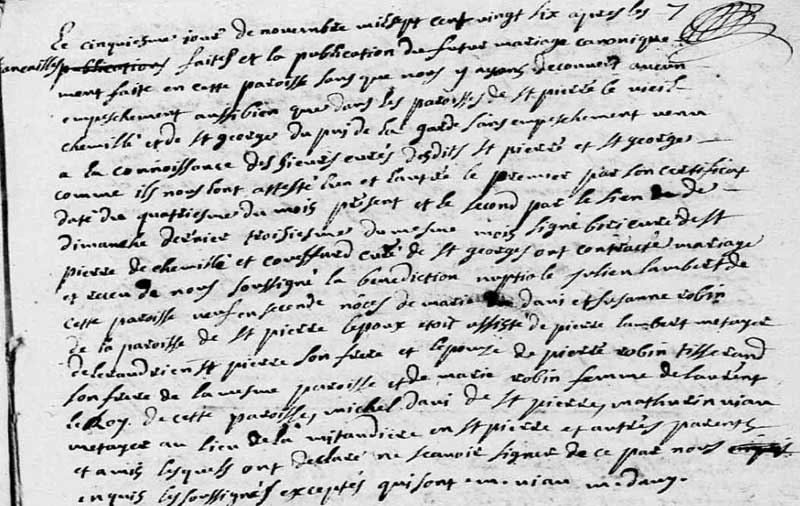 Le cinquiesme jour de novembre mil sept cent vingt six apres les
fiancailles publications faites et la publication de futur mariage canonique
ment faite en cette paroisse sans que nous y ayons decouvert aucun
empeschement aussi bien que dans les paroisses de St pierre le vieil
chemillé et de St george du pui de la garde sans empeschement venu
a la connoissance des sieurs curés desdits St pierre et St george
comme ils nous l'ont attesté l'un et l'autre le premier par son certificat
daté du quatriesme du mois present et le second par le sien de
dimanche dernier troisiesme du mesme mois signé curé de St
pierre de chemillé et couffard curé de St georges ont contracté mariage
et receu de nous soussigné la benediction nuptiale julien lambert de
cette paroisse veuf en seconde nôces de marie davi et susanne robin
de la paroisse de St pierre l'epoux etoit assisté de pierre lambert metayer
de en St pierre son frere et l'epouze de pierre robin tisserand
son frere de la mesme paroisse et de marie robin femme de laurent
le Roy de cette paroisse, michel davi de St pierre, mathurin viau
metayer au lieu de la mitandiere en St pierre et autres parents
et amis lesquels ont declaré ne scavoir signer de ce par nous
enquis les soussignés exceptés qui sont m. viau m. davy.